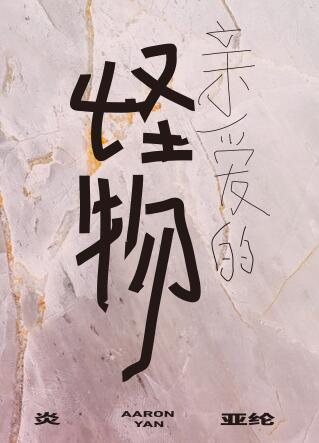 亲爱的
怪物
炎
AARON
YAN
亚纶